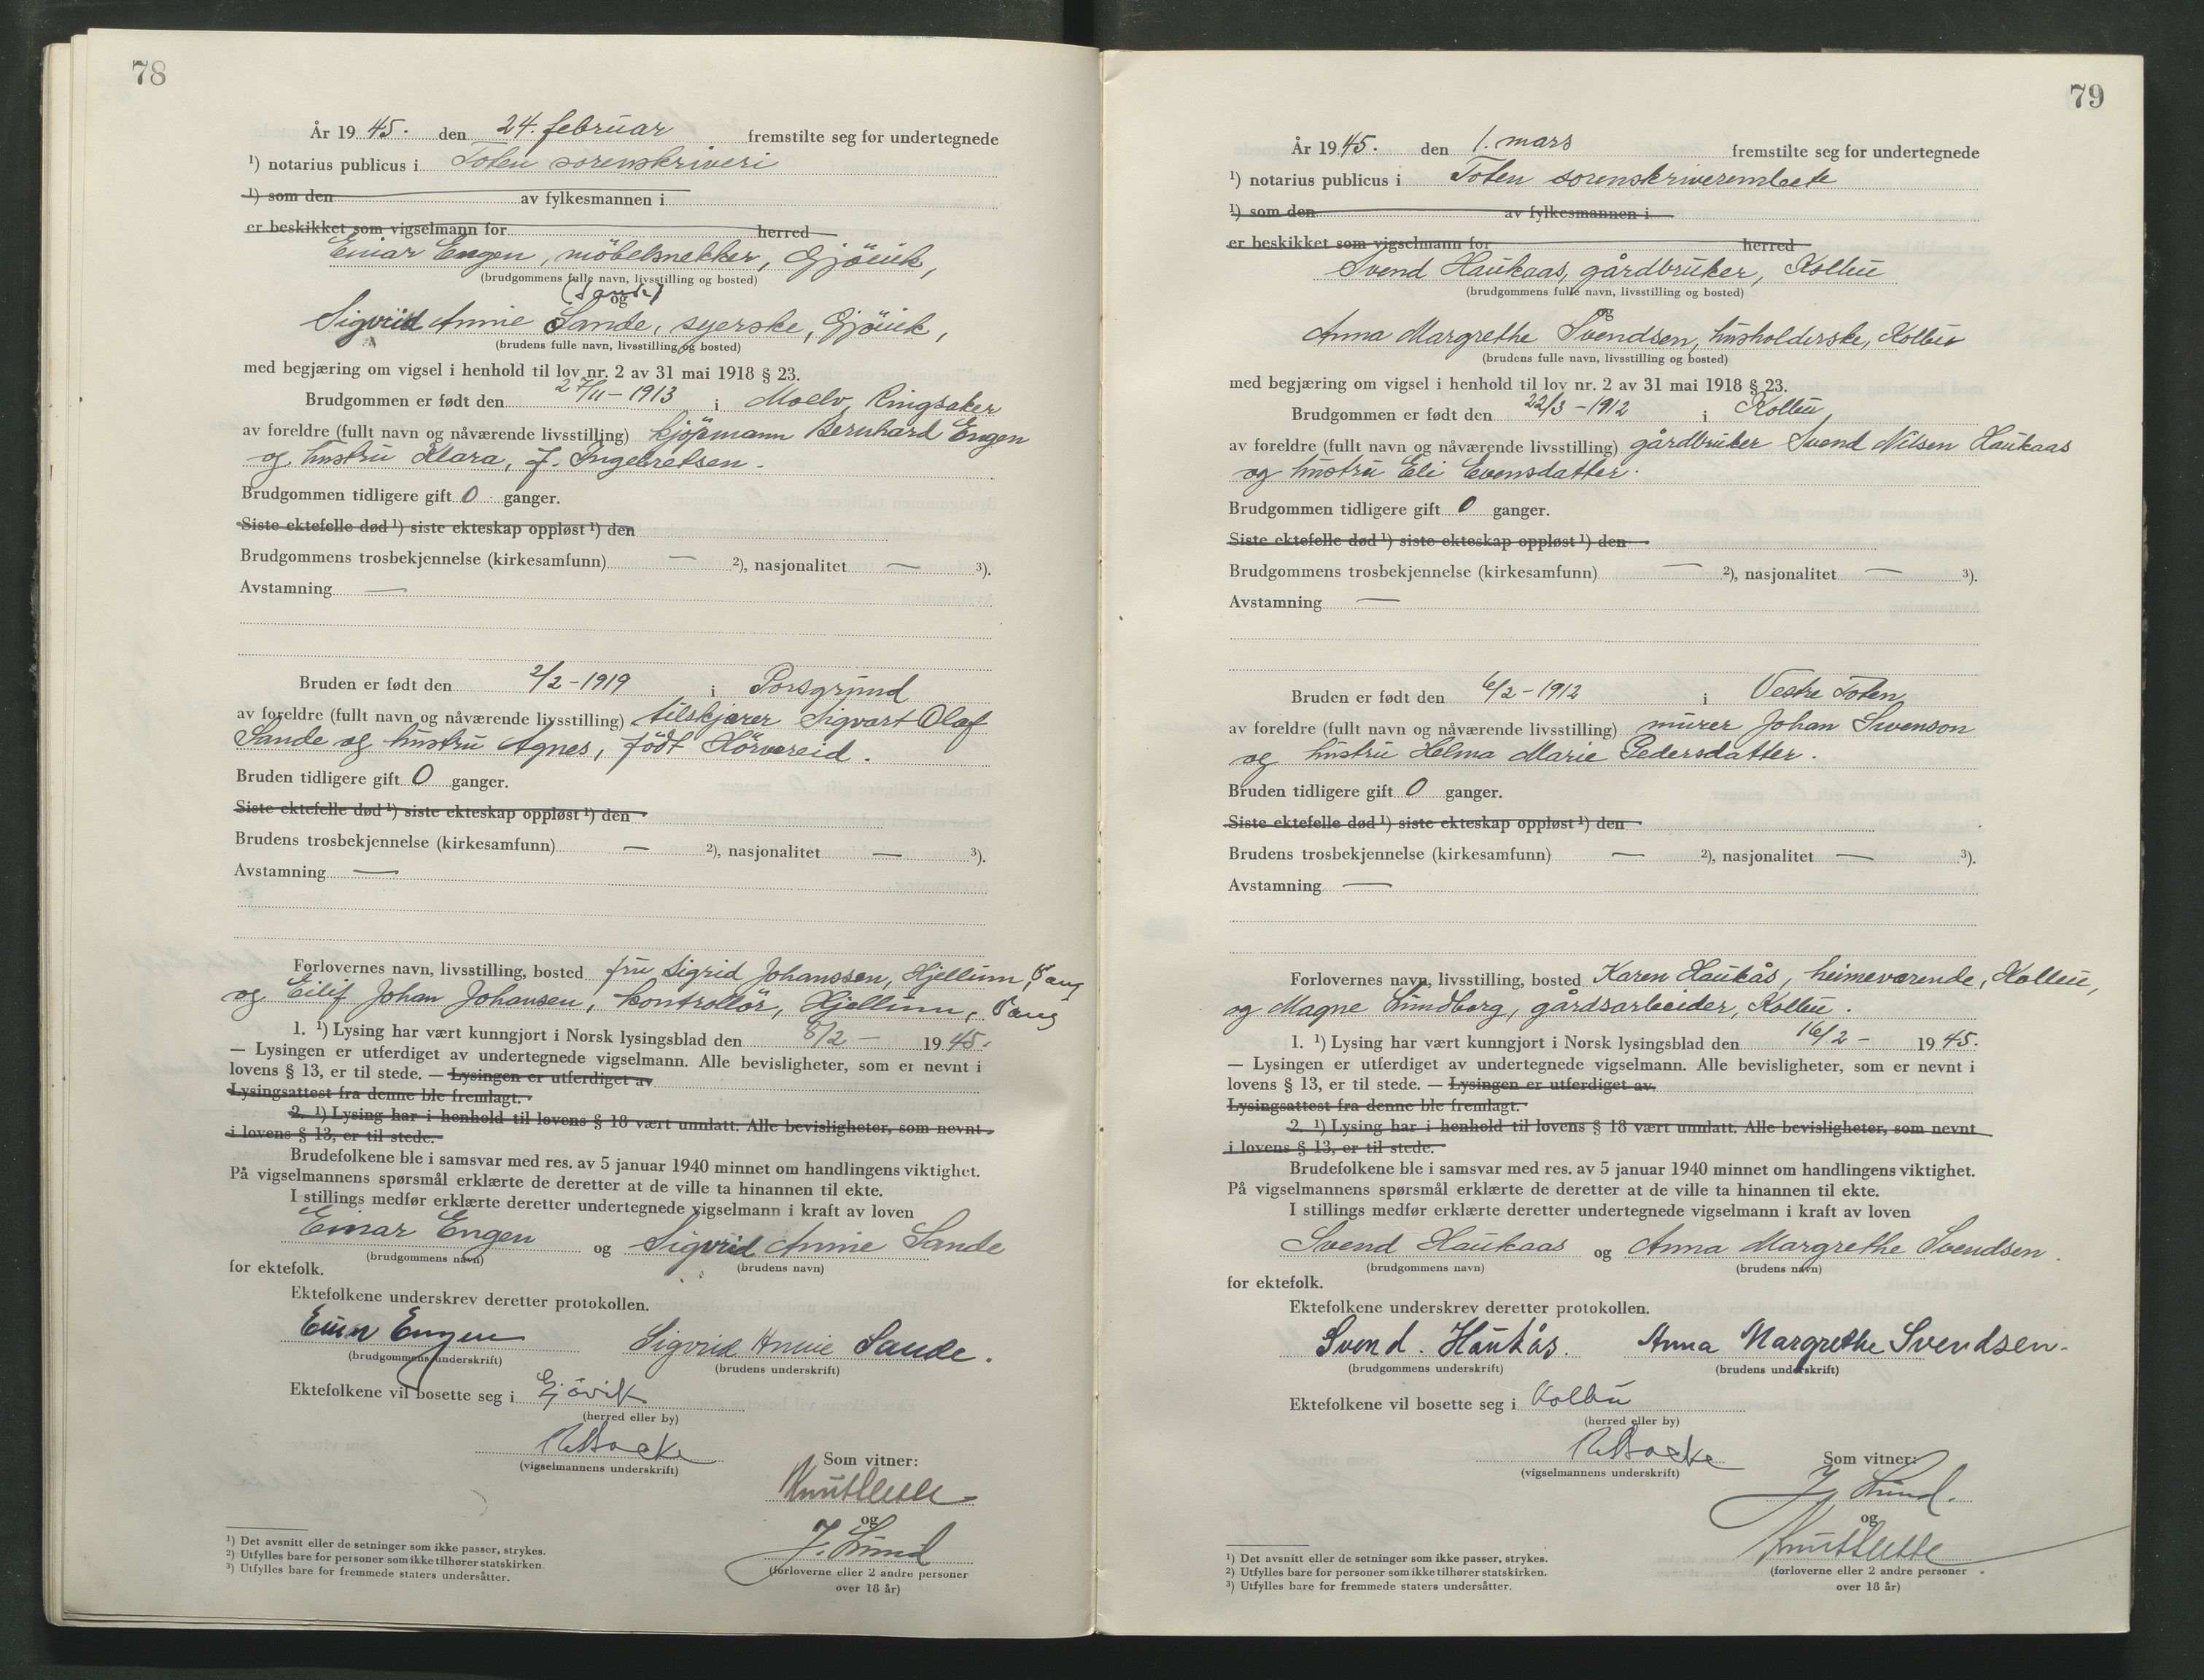 78
År 1945. den 24. februar fremstilte seg for undertegnede
¹) notarius publicus i Toten sorenskriveri
¹) som den av fylkesmannen i
er beskikket som vigselmann for herred
Einar Engen, möbelsnekker, Gjövik,
(brudgommens fulle navn, livsstilling og bosted)
(Sande)
og
Sigvrid Annie Sande, syerske, Gjövik,
(brudens fulle navn, livsstilling og bosted)
med begjæring om vigsel i henhold til lov nr. 2 av 31 mai 1918 § 23.
Brudgommen er født den 27/11-1913 i Moelv, Ringsaker
av foreldre (fullt navn og nåværende livsstilling) kjöpmann Bernhard Engen
og hustru Klara, f. Ingebretsen.
Brudgommen tidligere gift 0 ganger.
Siste ektefelle død ¹) siste ekteskap oppløst ¹) den
Brudgommens trosbekjennelse (kirkesamfunn) — ²), nasjonalitet — ³).
Avstamning —
Bruden er født den 2/2-1919 i Porsgrund
av foreldre (fullt navn og nåværende livsstilling) tilskjærer Sigvart Olaf
Sande og hustru Agnes, födt Hörvereid.
Bruden tidligere gift 0 ganger.
Siste ektefelle død ¹) siste ekteskap oppløst ¹) den
Brudens trosbekjennelse (kirkesamfunn) — ²), nasjonalitet — ³).
Avstamning —
Forlovernes navn, livsstilling, bosted fru Sigrid Johanssen, Hjellum, Vang
og Eilif Johan Johansen, kontrollör, Hjellum, Vang
1. ¹) Lysing har vært kunngjort i Norsk lysingsblad den 8/2 - 1945.
— Lysingen er utferdiget av undertegnede vigselmann. Alle bevisligheter, som er nevnt i
lovens § 13, er til stede. — Lysingen er utferdiget av
Lysingsattest fra denne ble fremlagt.
2. ¹) Lysing har i henhold til lovens § 18 vært unnlatt. Alle bevisligheter, som nevnt
i lovens § 13, er til stede.
Brudefolkene ble i samsvar med res. av 5 januar 1940 minnet om handlingens viktighet.
På vigselmannens spørsmål erklærte de deretter at de ville ta hinannen til ekte.
I stillings medfør erklærte deretter undertegnede vigselmann i kraft av loven
Einar Engen og Sigvrid Annie Sande
(brudgommens navn) (brudens navn)
for ektefolk.
Ektefolkene underskrev deretter protokollen.
Einar Engen Sigvrid Annie Sande.
(brudgommens underskrift) (brudens underskrift)
Ektefolkene vil bosette seg i Gjövik
(herred eller by)
(vigselmannens underskrift)
Som vitner:
og
J. Lund
(forloverne eller 2 andre personer
over 18 år)
¹) Det avsnitt eller de setninger som ikke passer, strykes.
²) Utfylles bare for personer som ikke tilhører statskirken.
³) Utfylles bare for fremmede staters undersåtter.
79
År 1945. den 1. mars fremstilte seg for undertegnede
¹) notarius publicus i Toten sorenskriverembete
¹) som den av fylkesmannen i
er beskikket som vigselmann for herred
Svend Haukaas, gårdbruker, Kolbu
(brudgommens fulle navn, livsstilling og bosted)
og
Anna Margrethe Svendsen, husholderske, Kolbu
(brudens fulle navn, livsstilling og bosted)
med begjæring om vigsel i henhold til lov nr. 2 av 31 mai 1918 § 23.
Brudgommen er født den 22/3-1912 i Kolbu,
av foreldre (fullt navn og nåværende livsstilling) gårdbruker Svend Nilsen Haukaas
og hustru Eli Evensdatter.
Brudgommen tidligere gift 0 ganger.
Siste ektefelle død ¹) siste ekteskap oppløst ¹) den
Brudgommens trosbekjennelse (kirkesamfunn) — ²), nasjonalitet — ³).
Avstamning —
Bruden er født den 6/2-1912 i Vestre Toten
av foreldre (fullt navn og nåværende livsstilling) murer Johan Svenson
og hustru Helma Marie Pedersdatter.
Bruden tidligere gift 0 ganger.
Siste ektefelle død ¹) siste ekteskap oppløst ¹) den
Brudens trosbekjennelse (kirkesamfunn) — ²), nasjonalitet — ³).
Avstamning —
Forlovernes navn, livsstilling, bosted Karen Haukås, heimeværende, Kolbu,
og Magne Lundberg, gårdsarbeider, Kolbu.
1. ¹) Lysing har vært kunngjort i Norsk lysingsblad den 16/2 - 1945.
— Lysingen er utferdiget av undertegnede vigselmann. Alle bevisligheter, som er nevnt i
lovens § 13, er til stede. — Lysingen er utferdiget av
Lysingsattest fra denne ble fremlagt.
2. ¹) Lysing har i henhold til lovens § 18 vært unnlatt. Alle bevisligheter, som nevnt
i lovens § 13, er til stede.
Brudefolkene ble i samsvar med res. av 5 januar 1940 minnet om handlingens viktighet.
På vigselmannens spørsmål erklærte de deretter at de ville ta hinannen til ekte.
I stillings medfør erklærte deretter undertegnede vigselmann i kraft av loven
Svend Haukaas og Anna Margrethe Svendsen.
(brudgommens navn) (brudens navn)
for ektefolk.
Ektefolkene underskrev deretter protokollen.
Svend. Haukås. Anna Margrethe Svendsen.
(brudgommens underskrift) (brudens underskrift)
Ektefolkene vil bosette seg i Kolbu
(herred eller by)
(vigselmannens underskrift)
Som vitner:
J. Lund.
og
(forloverne eller 2 andre personer
over 18 år)
¹) Det avsnitt eller de setninger som ikke passer, strykes.
²) Utfylles bare for personer som ikke tilhører statskirken.
³) Utfylles bare for fremmede staters undersåtter.